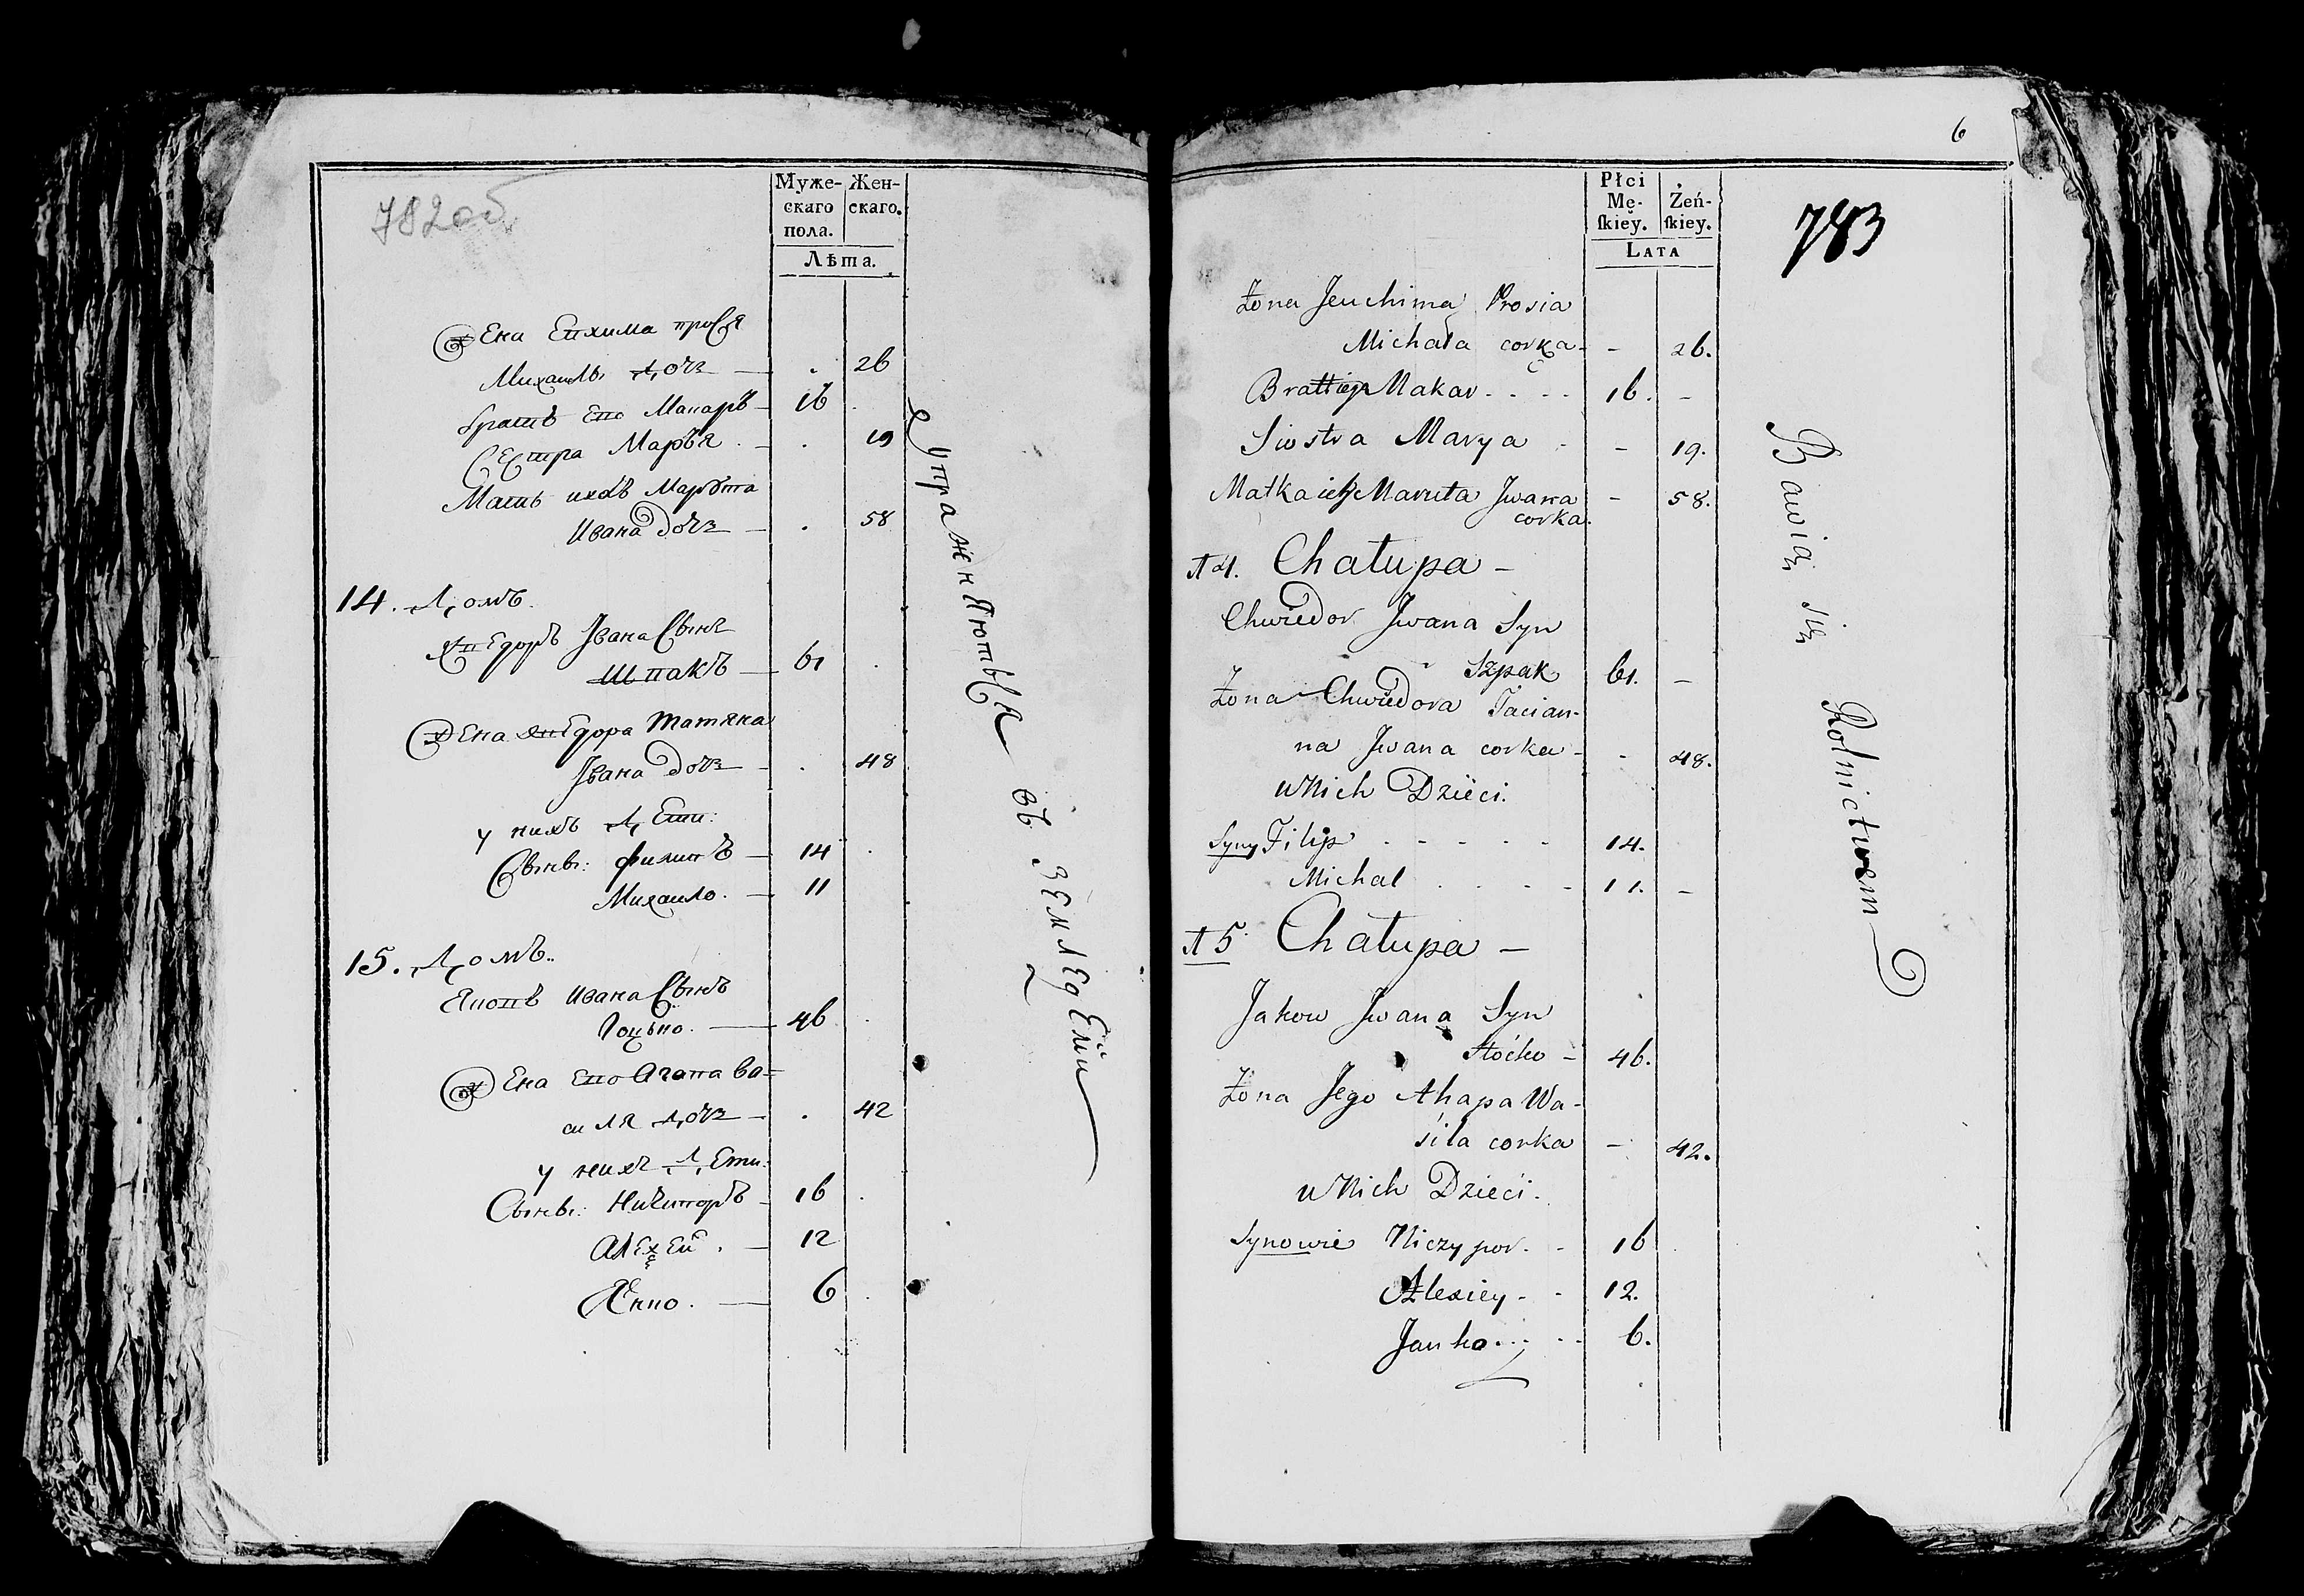 782об
Муже-
скаго
пола.
Жен-
скаго.
Лѣта.
жена Евхима прося
Михаилы дочъ — . 26
братъ его Макаръ — 16 .
Сестра Марья . — . 19
Мать ихъ Марута
Ивана дочъ — . 58
14. Домъ.
Хведоръ Ивана Сынъ
Шпакъ — 61 .
жена Хведора Татяна
Ивана дочъ — . 48
у нихъ дети:
Сыны: филипъ — 14 .
Михаило. — 11
15. Домъ.
Яковъ Ивана Сынъ
46 .
жена его Агапа Ва=
силя дочъ — . 42
у нихъ дети:
Сыны: Никипоръ — 16 .
Алexей . — 12
Янко. — 6 .
упражняются въ земледелии
6
783
Płci
Mę-
ſkiey.
Żeń-
ſkiey.
Lata
Żona Jeuchima Prosia
Michała corka - - 26.
Brat Makar . . - - 16. -
Siostra Marya - - 19.
Matka ich Maruta Jwana - 58.
corka.
14. Chałupa -
Chwiedor Jwana Syn
Szpak 61. -
Żona Chwiedora Tacian-
na Jwana corka - - 48.
u Nich Dzieci.
Syny Filip - - - - - 14.
Michał . . - - 11. -
15 Chałupa -
Jakow Jwana Syn
- 46.
Żona Jego Ahapa Wa-
sila corka - 42.
u Nich Dzieci.
Synowie Niczypor. - 16
Alexiey - - 12.
Janko. . . - - 6.
Bawią się Rolnictwem